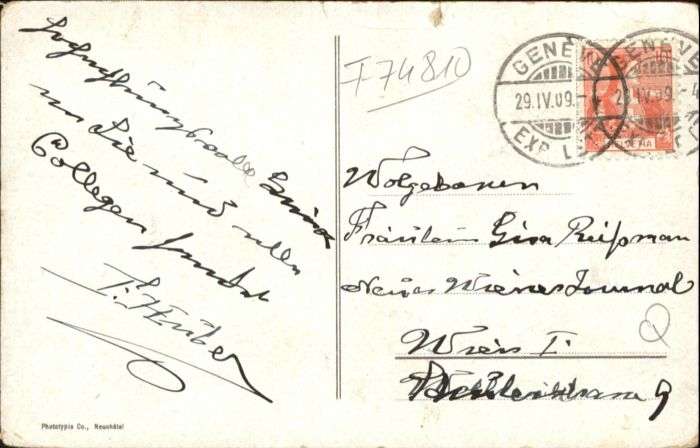 Hochachtungsvolle Gruss
an Sie und allen
Collegen sendet
T. Huber
T 74810
GENÈVE
29.IV.09.-
EXP. L
GENÈVE
29.IV.09.-
HELVETIA
Wolgeboren
Fräulein Gisa Reißman
Neues Wiener Journal
Wien I.
9
Phototypie Co., Neuchâtel